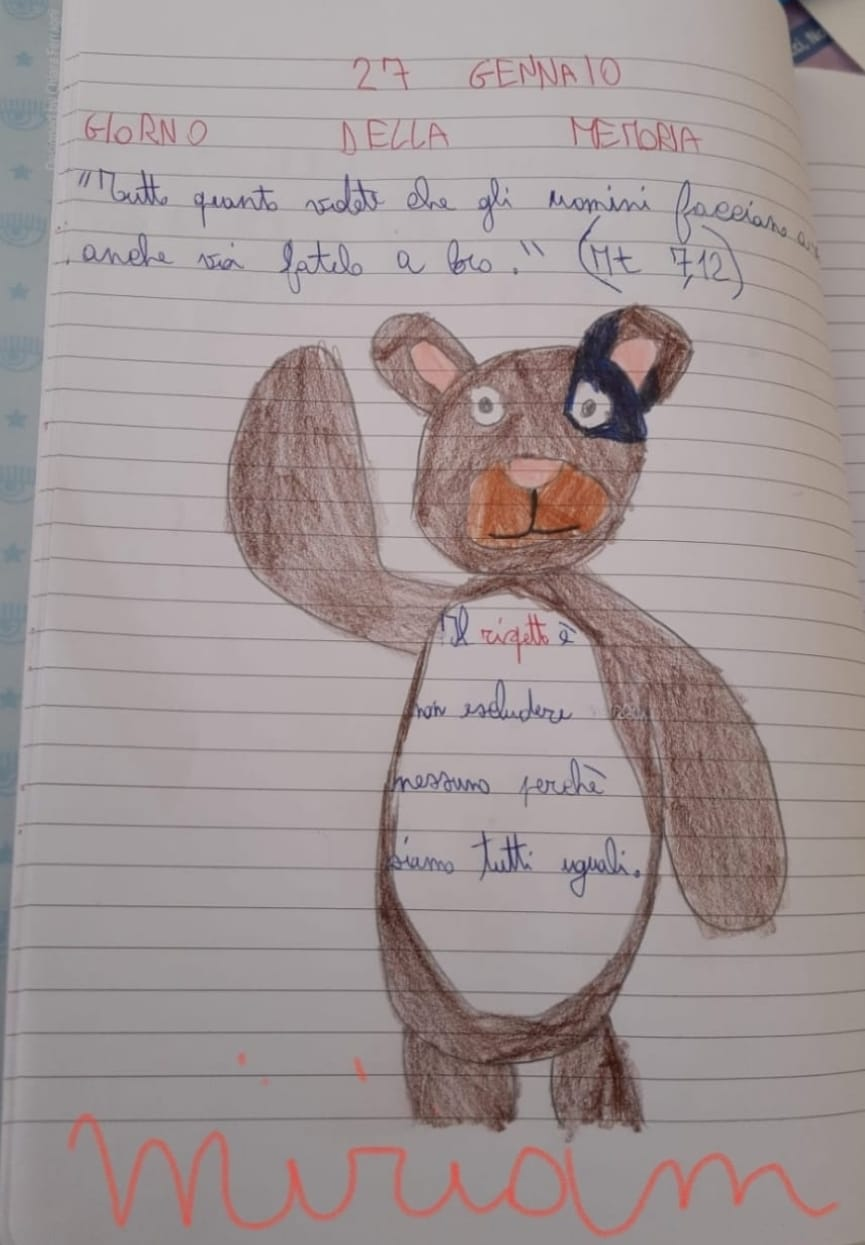 27 GENNAIO
GIORNO DELLA MEMORIA
"Tutto quanto volete che gli uomini facciano a
anche voi fatelo a loro." (Mt 7,12)
Il rispetto è
non escludere
nessuno perchè
siamo tutti uguali.
miriam